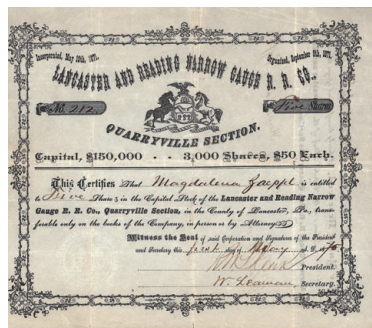 Incorporated, May 10th, 1871.
Organized, September 9th, 1871.
LANCASTER AND READING NARROW GAUGE R. R. CO.,
No. 212.
Five Shares
QUARRYVILLE SECTION.
Capital, $150,000 . . 3,000 Shares, $50 Each.
This Certifies That Magdalena is entitled
to Five Shares in the Capital Stock of the Lancaster and Reading Narrow
Gauge R. R. Co., Quarryville Section, in the County of Lancaster, Pa., trans-
ferable only on the books of the Company, in person or by Attorney.
Witness the Seal of said Corporation and Signatures of the President
and Secretary this first day of May A. D. 1875
President.
W. Leaman, Secretary.